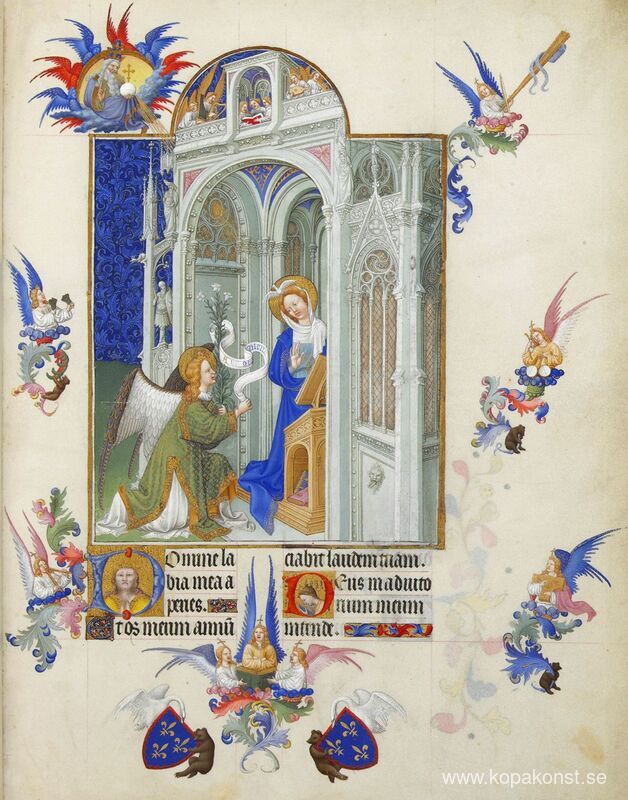 Domine la
bia mea a
peries.
Et os meum annū
ciabit laudem tuam.
Deus in adiuto
rium meum
intende.
www.kopakonst.se